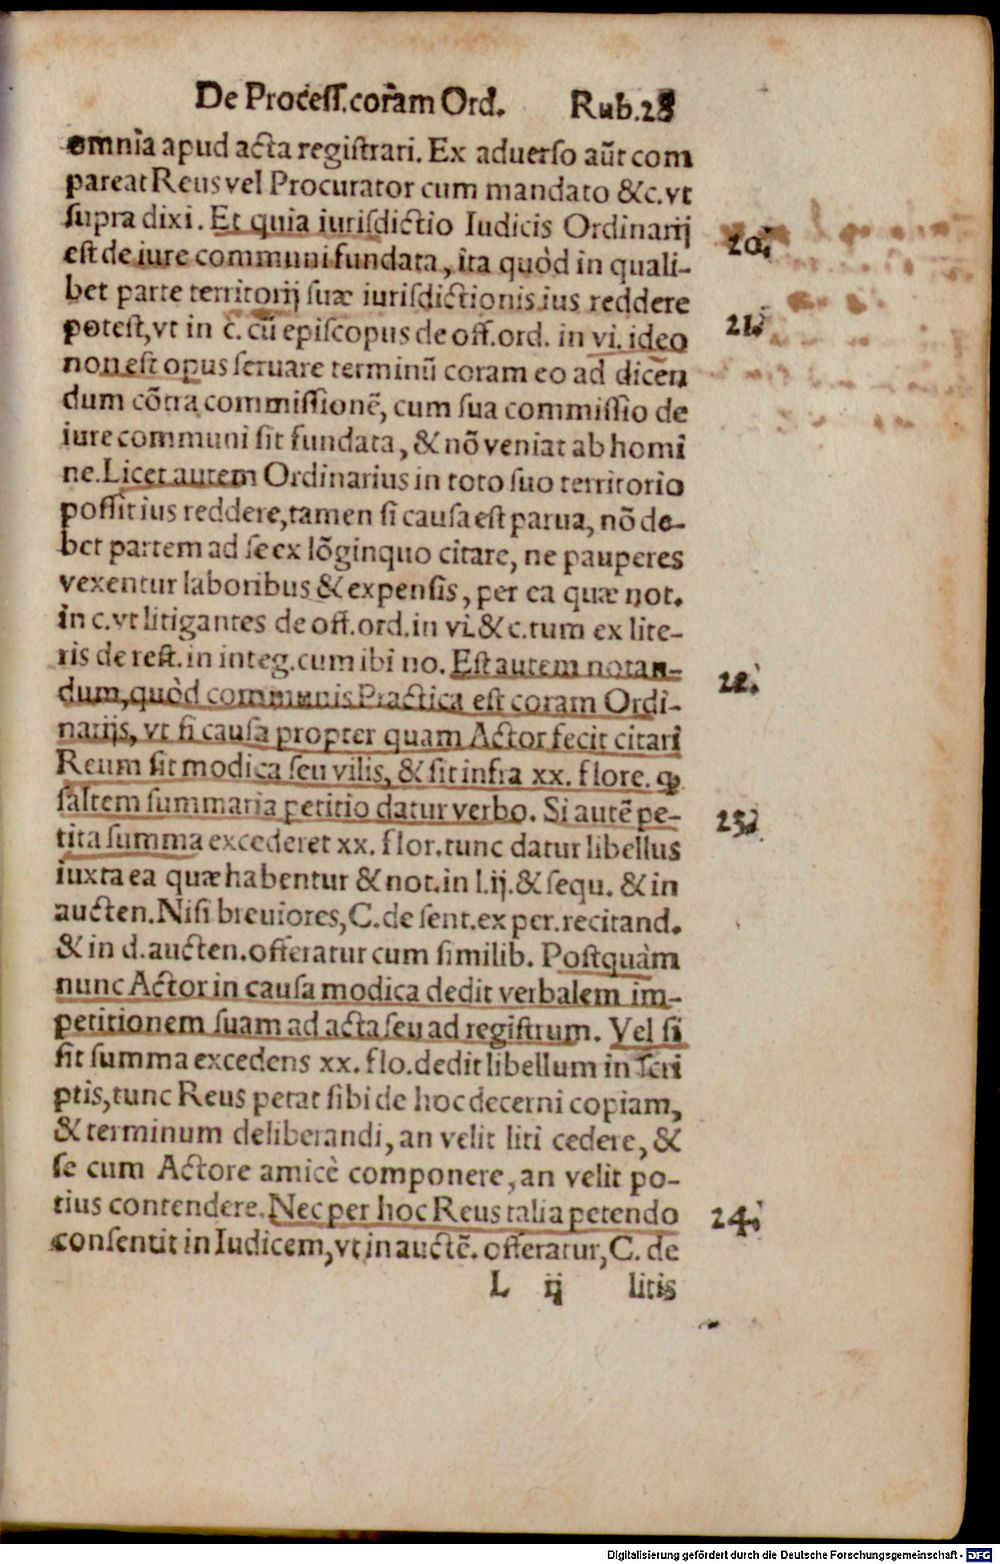 De Proceſſ. coram Ord. Rub. 28
omnia apud acta regiſtrari. Ex aduerſo aūt com
pareat Reus vel Procurator cum mandato &c. vt
ſupra dixi. Et quia iuriſdictio Iudicis Ordinarij
20.
eſt de iure communi fundata, ita quòd in quali-
bet parte territorij ſuæ iuriſdictionis ius reddere
poteſt, vt in c. cū epiſcopus de off. ord. in vi. ideo
21.
non eſt opus ſeruare terminū coram eo ad dicen
dum cōtra commiſſionē, cum ſua commiſſio de
iure communi ſit fundata, & nō veniat ab homi
ne. Licet autem Ordinarius in toto ſuo territorio
poſſit ius reddere, tamen ſi cauſa eſt parua, nō de-
bet partem ad ſe ex lōginquo citare, ne pauperes
vexentur laboribus & expenſis, per ea quæ not.
in c. vt litigantes de off. ord. in vi. & c. tum ex lite-
ris de reſt. in integ. cum ibi no. Eſt autem notan-
22.
dum, quòd communis Practica eſt coram Ordi-
narijs, vt ſi cauſa propter quam Actor fecit citari
Reum ſit modica ſeu vilis, & ſit infra xx. flore. ꝙ
ſaltem ſummaria petitio datur verbo. Si autē pe-
23.
tita ſumma excederet xx. flor. tunc datur libellus
iuxta ea quæ habentur & not. in l. ij. & ſequ. & in
aucten. Niſi breuiores, C. de ſent. ex per. recitand.
& in d. aucten. offeratur cum ſimilib. Poſtquàm
nunc Actor in cauſa modica dedit verbalem im-
petitionem ſuam ad acta ſeu ad regiſtrum. Vel ſi
ſit ſumma excedens xx. flo. dedit libellum in ſcri
ptis, tunc Reus petat ſibi de hoc decerni copiam,
& terminum deliberandi, an velit liti cedere, &
ſe cum Actore amicè componere, an velit po-
tius contendere. Nec per hoc Reus talia petendo
24.
conſentit in Iudicem, vt in auctē. offeratur, C. de
L ij litis
Digitalisierung gefördert durch die Deutsche Forschungsgemeinschaft - DFG